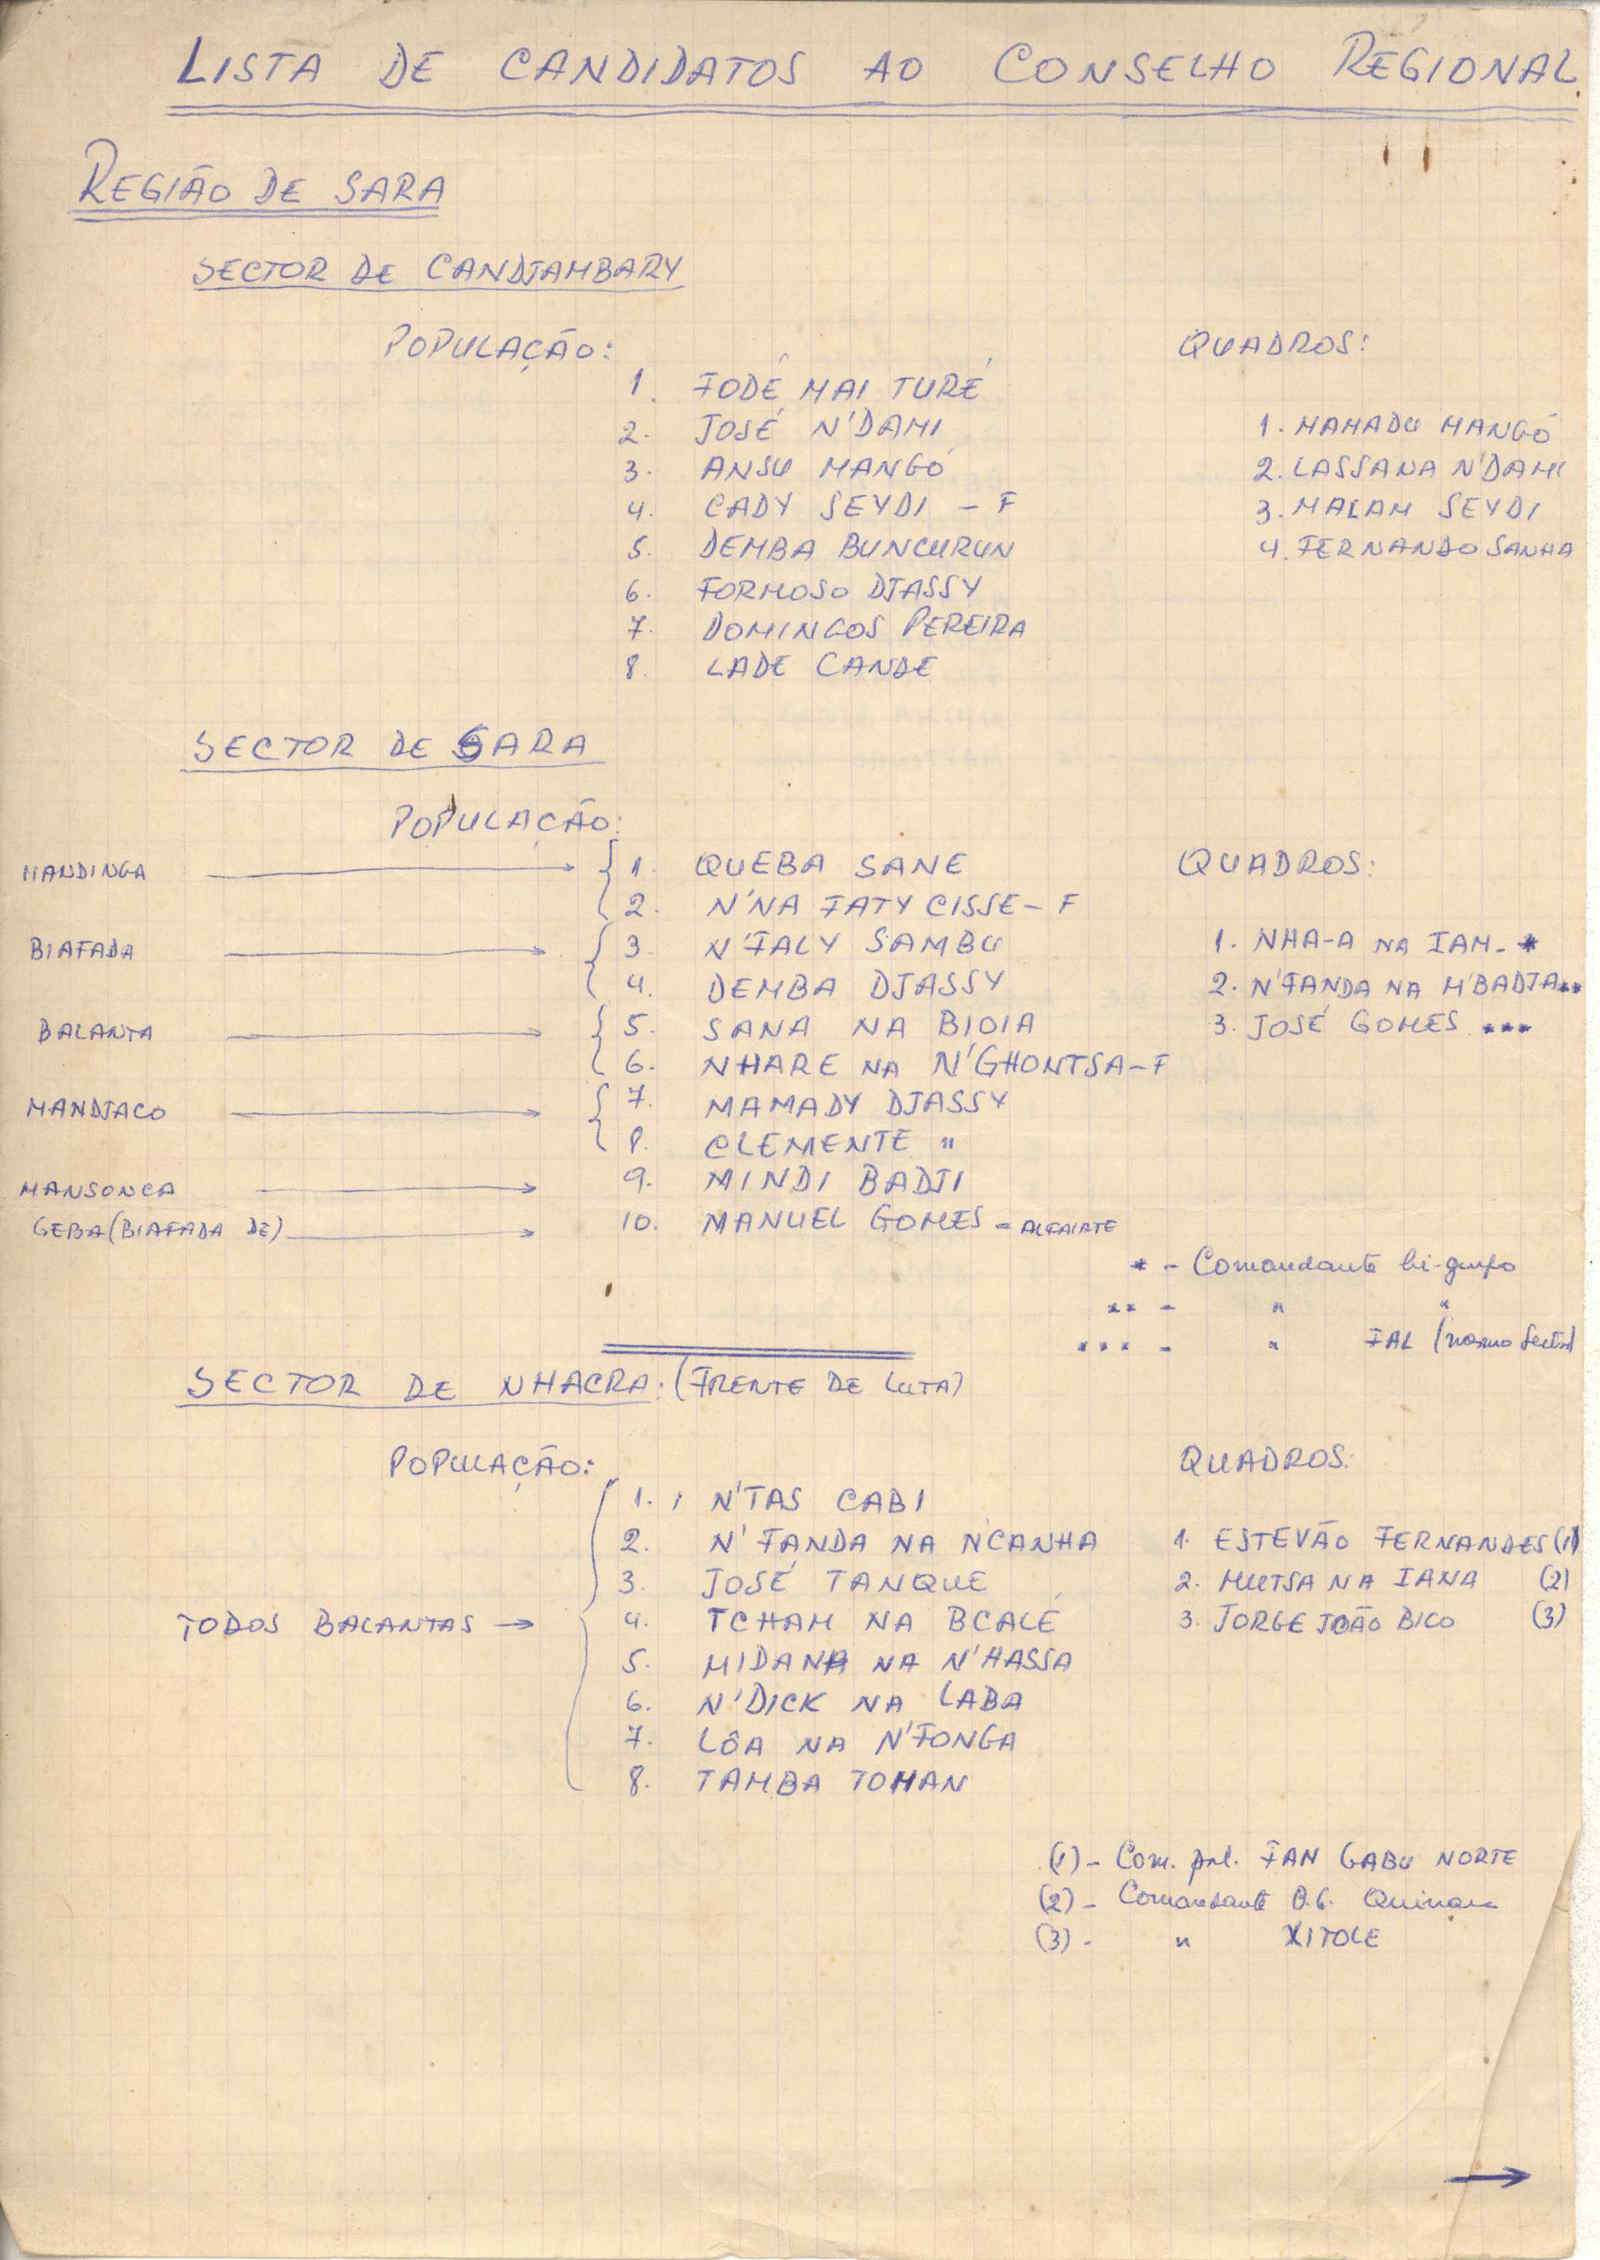 LISTA DE CANDIDATOS AO CONSELHO REGIONAL
REGIÃO DE SARA
SECTOR DE CANDJAMBARY
POPULAÇÃO:
1. FODÉ MAI TURÉ
2. JOSÉ N'DAMI
3. ANSU MANGÓ
4. CADY SEYDI - F
5. DEMBA BUNCURUN
6. FORMOSO DJASSY
7. DOMINGOS PEREIRA
8. LADE CANDE
QUADROS:
1. MAMADU MANGÓ
2. LASSANA N'DAMI
3. MALAM SEYDI
4. FERNANDO SANHA
SECTOR DE SARA
POPULAÇÃO:
MANDINGA → { 1. QUEBA SANE
2. N'NA FATY CISSE - F
BIAFADA → { 3. N'FALY SAMBU
4. DEMBA DJASSY
BALANTA → { 5. SANA NA BIOIA
6. NHARE NA N'GHONTSA - F
MANDJACO → { 7. MAMADY DJASSY
8. CLEMENTE "
MANSONCA → 9. MINDI BADJI
GEBA (BIAFADA DE) → 10. MANUEL GOMES - ALFAIATE
QUADROS:
1. NHA-A NA IAM - *
2. N'FANDA NA M'BADJA **
3. JOSÉ GOMES ***
* - Comandante bi-grupo
** - " "
*** - " FAL (nosso sector)
SECTOR DE NHACRA: (FRENTE DE LUTA)
POPULAÇÃO:
TODOS BALANTAS → { 1. N'TAS CABI
2. N'FANDA NA N'CANHA
3. JOSÉ TANQUE
4. TCHAM NA BCALÉ
5. MIDANA NA N'HASSA
6. N'DICK NA LABA
7. LÔA NA N'FONGA
8. TAMBA TOMAN
QUADROS:
1. ESTEVÃO FERNANDES (1)
2. MUTSA NA IANA (2)
3. JORGE JOÃO BICO (3)
(1) - Com. pol. FAN GABU NORTE
(2) - Comandante B.G. Quinara
(3) - " XITOLE
→